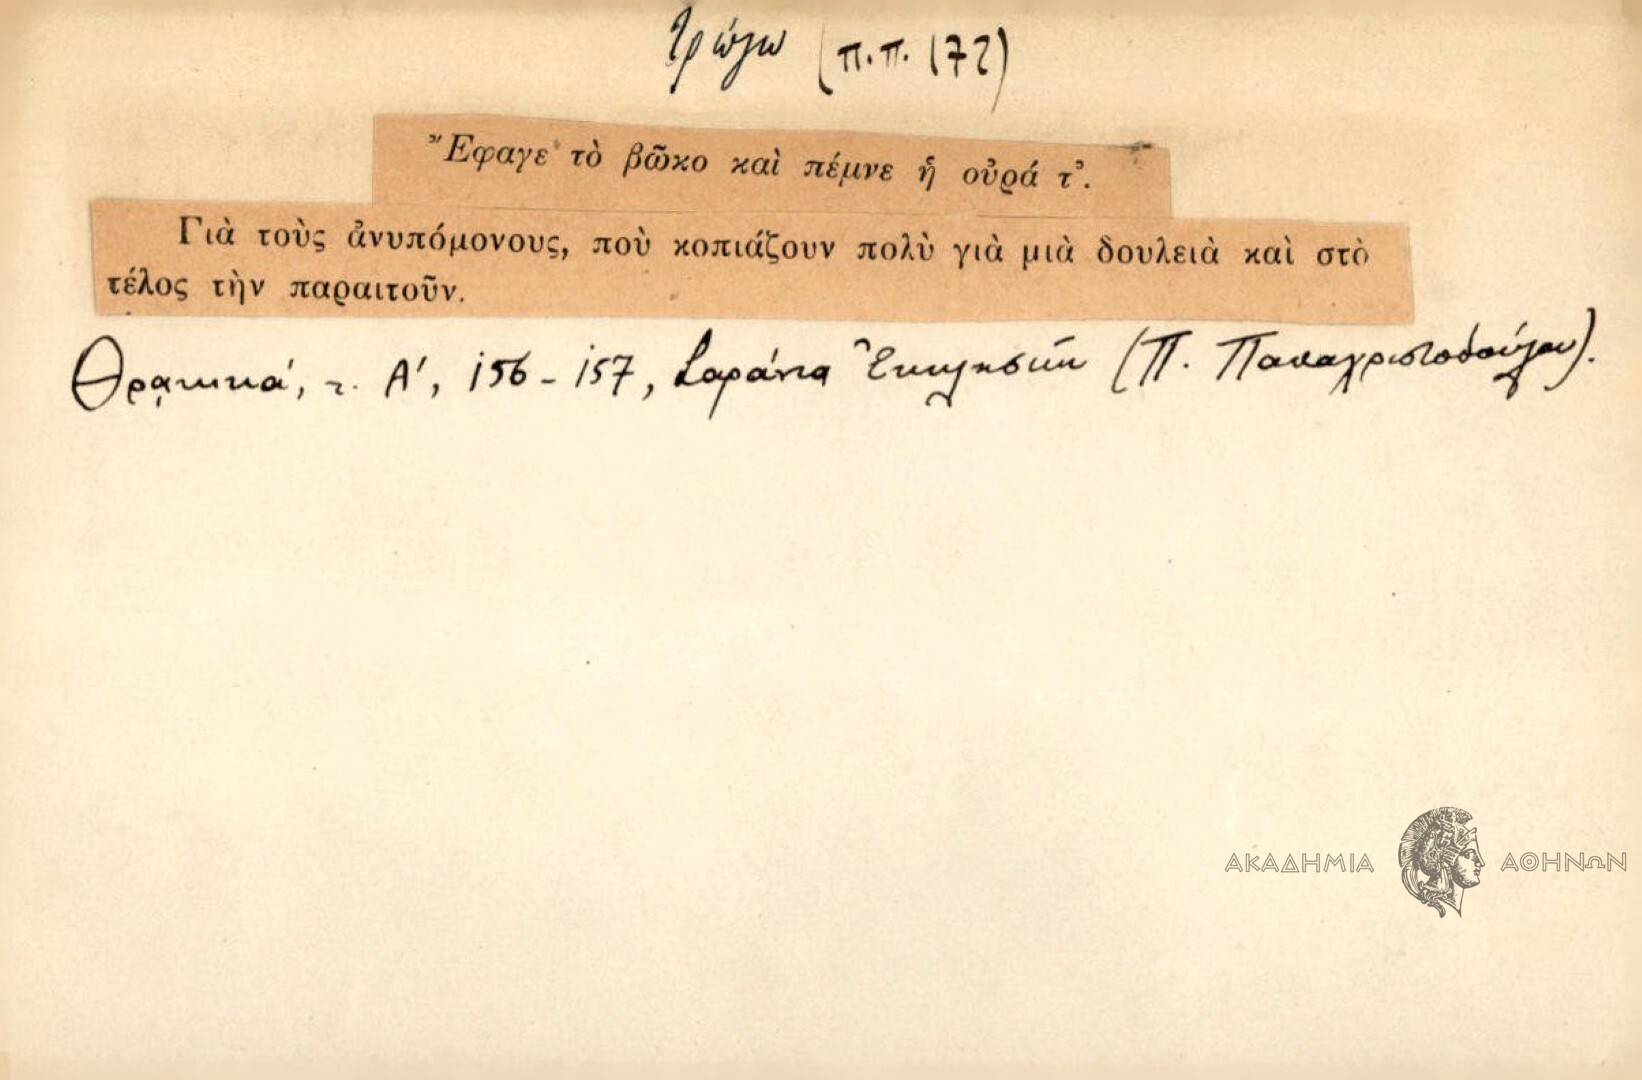 τρώγω (π.π. 172)
Ἔφαγε τὸ βῶκο καὶ πέμνε ἡ οὐρά τ᾽.
Γιὰ τοὺς ἀνυπόμονους, ποὺ κοπιάζουν πολὺ γιὰ μιὰ δουλειὰ καὶ στὸ
τέλος τὴν παραιτοῦν.
Θρακικά, τ. Α΄, 156-157, Σαράντα Ἐκκλησιῶν (Π. Παπαχριστοδούλου).
ΑΚΑΔΗΜΙΑ ΑΘΗΝΩΝ